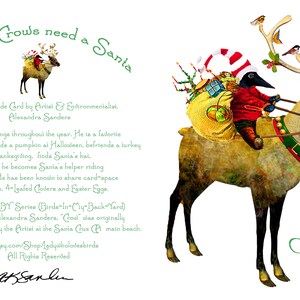 Crows need a Santa
de Card by Artist & Environmentalist,
Alexandra Sanders
nge throughout the year. He is a favorite
de a pumpkin at Halloween, befriends a turkey
hanksgiving, finds Santa's hat,
he becomes Santa's helper riding
He has been known to share card-space
, 4-leafed Clovers and Easter Eggs.
Series (Birds-In-My-Back-Yard)
Alexandra Sanders. "Crow" was originally
by the Artist at the Santa Cruz CA main beach.
All Rights Reserved